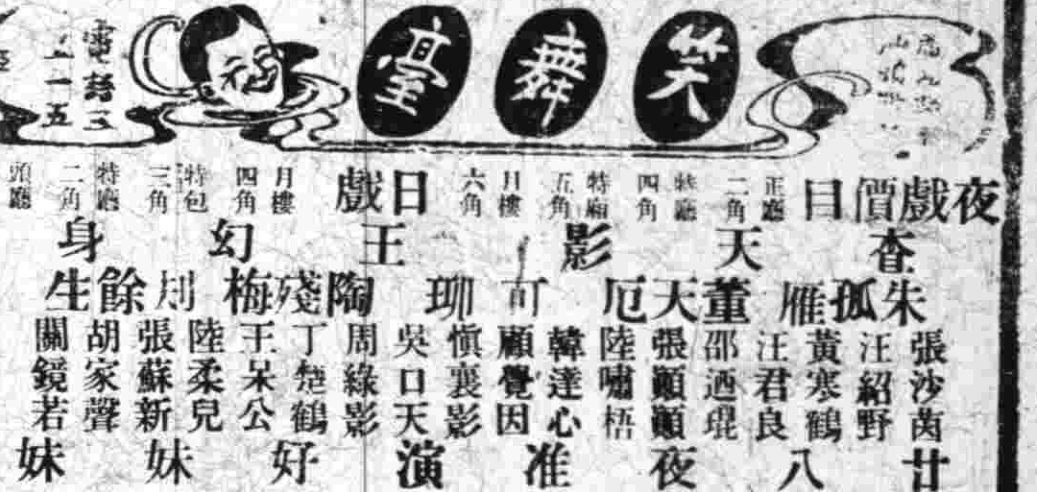 笑舞臺
電話
夜戲價目
正廳二角
特廳四角
特廂五角
月樓六角
日戲
月樓四角
特包三角
特廳二角
頭廳
查天影
王幻身
朱孤雁
董天厄
陶殘梅
餘生
張沙茵
汪紹野
黃寒鶴
汪君良
邵迺琨
張顚顚
陸嘯梧
韓達心
顧覺因
慎裏影
吳口天
周綠影
丁楚鶴
王呆公
陸柔兒
張蘇新
胡家聲
關鏡若
廿八夜准演好妹妹